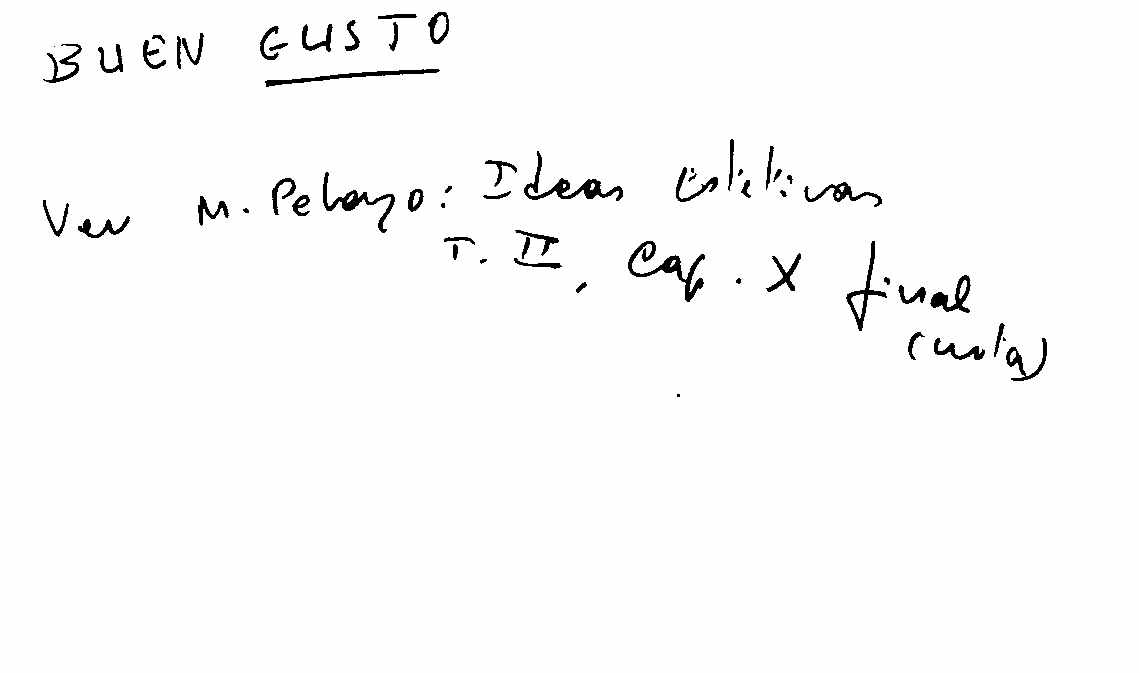 BUEN GUSTO
Ver M. Pelayo: Ideas esteticas
T. II, Cap. X final
(nota)